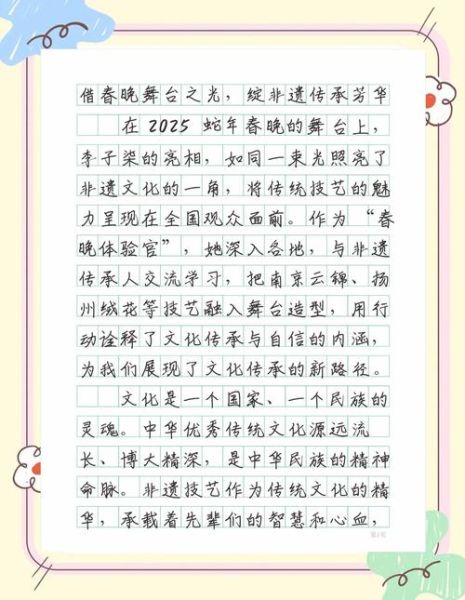 借春晚舞台之光，绽非遗传承芳华
在2025蛇年春晚的舞台上，
李子柒的亮相，如同一束光照亮了
非遗文化的一角，将传统技艺的魅
力呈现在全国观众面前。作为“春
晚体验官”，她深入各地，与非遗
传承人交流学习，把南京云锦、扬
州绒花等技艺融入舞台造型，用行
动诠释了文化传承与自信的内涵，
为我们展现了文化传承的新路径。
文化是一个国家、一个民族的
灵魂。中华优秀传统文化源远流
长、博大精深，是中华民族的精神
命脉。非遗技艺作为传统文化的精
华，承载着先辈们的智慧和心血，
第1页